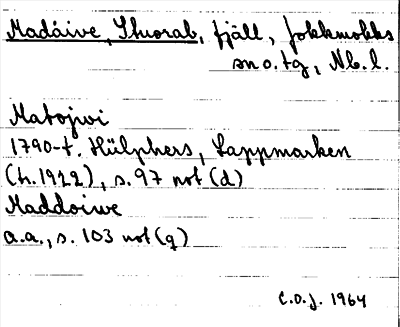 Madáive, Shuorab, fjäll, Jokkmokks
sn o. tg, Nb. l.
Matojwi
1790-t. Hülphers, Lappmarken
(h. 1922), s. 97 not (d)
Maddoiwe
a.a., s. 103 not (q)
C.O.J. 1964